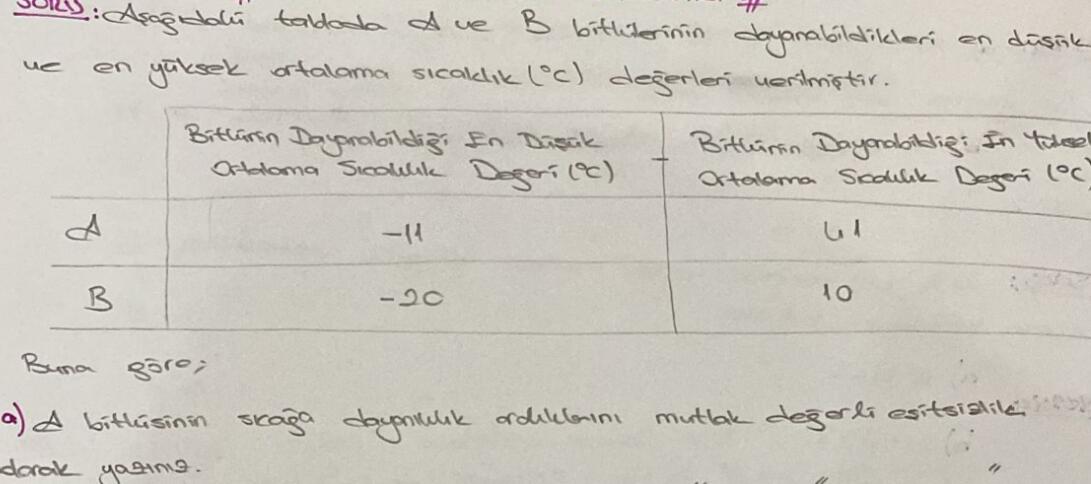 SORU: Aşağıdaki tabloda A ve B bitkilerinin dayanabildikleri en düşük
ve en yüksek ortalama sıcaklık (°C) değerleri verilmiştir.
Bitkinin Dayanabildiği En Düşük Ortalama Sıcaklık Değeri (°C)
Bitkinin Dayanabildiği En Yüksel Ortalama Sıcaklık Değeri (°C
A -11 41
B -20 10
Buna göre;
a) A bitkisinin sıcağa dayanıklılık aralıklarını mutlak değerli eşitsizlik
olarak yazınız.